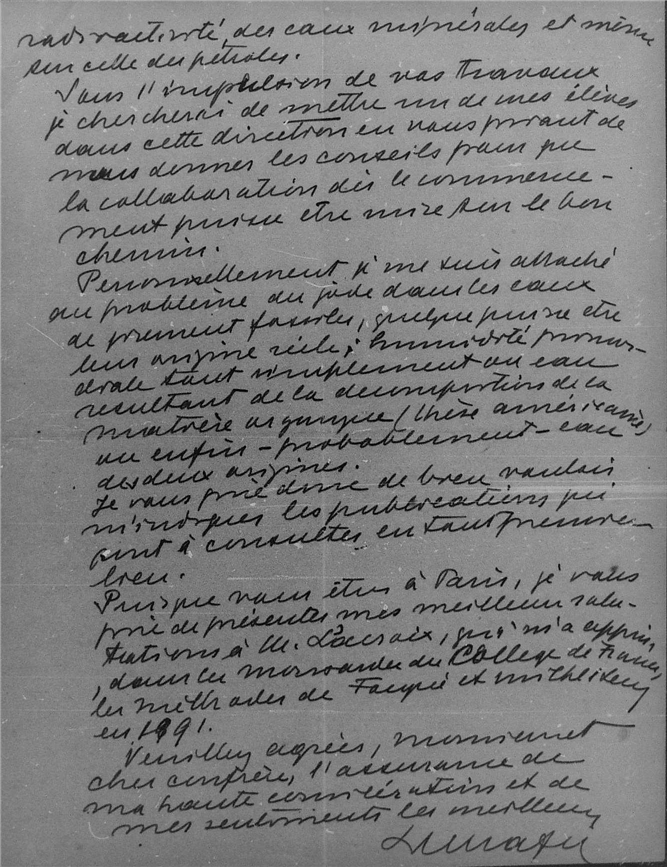 radioactivité, des eaux minérales et même
sur celle des pétroles.
Sous l'impulsion de vos travaux
je chercherai de mettre un de mes élèves
dans cette direction en vous priant de
nous donner les conseils pour que
la collaboration dès le commence-
ment puisse etre mise sur le bon
chemin.
Personnellement je me suis attaché
au problème du iode dans les eaux
de gisement fossiles, quelque puisse etre
leur origine réelle; humidité primor-
diale tout simplement ou eau
resultant de la decomposition de la
matière organique (thèse américaine)
ou enfin – probablement – eau
des deux origines.
Je vous prie donc de bien vouloir
m'indiquer les publications qui
sont à consulter en tout premier
lieu.
Puisque vous êtes à Paris, je vous
prie de présenter mes meilleures salu-
tations à M. Lacroix, qui m'a appris,
dans les mansardes du Collège de France,
les méthodes de Fouqué et
en 1891.
Veuillez agréer, monsieur et
cher confrère, l'assurance de
ma haute considération et de
mes sentiments les meilleurs